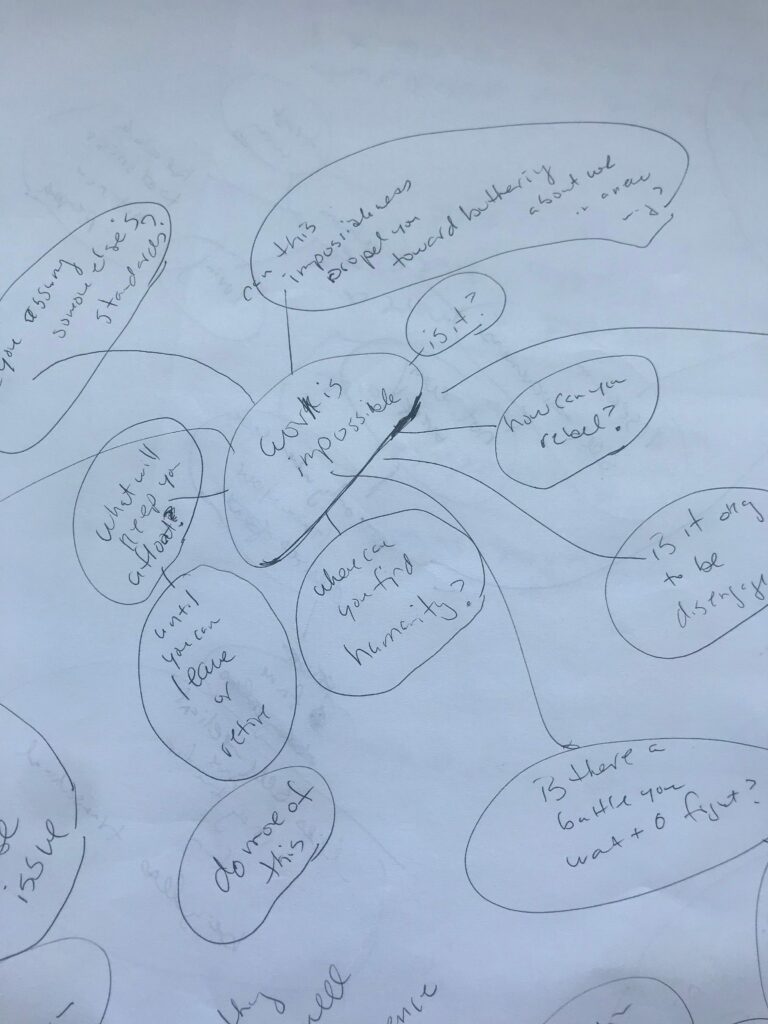 can this
impossibleness
propel you
toward buttering
about we
in a new
you assuming
someone else's
standards?
is it?
work is
impossible
how can you
rebel?
what will
keep you
afloat?
where can
you find
humanity?
is it okay
to be
disengage
until
you can
leave
or
retire
is there a
battle you
wat to fight?
do more of
this
issue
ence